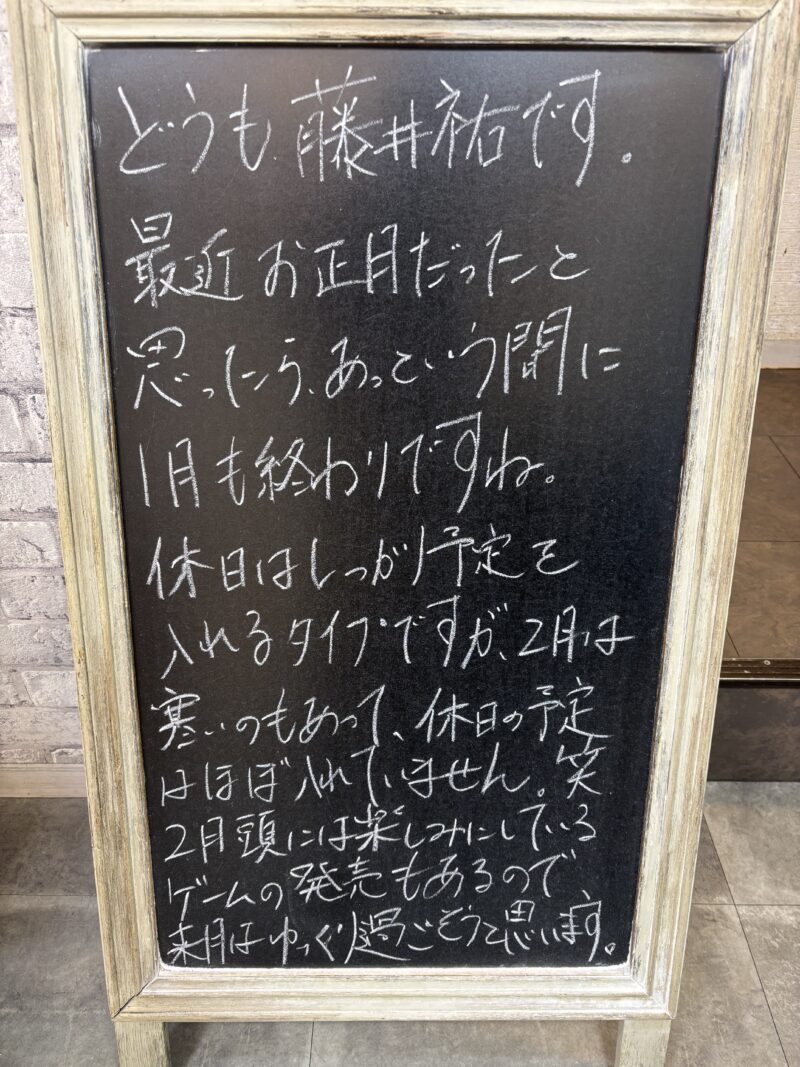 どうも、藤井祐です。
最近お正月だったと
思ったら、あっという間に
1月も終わりですね。
休日はしっかり予定を
入れるタイプですが、2月は
寒いのもあって、休日の予定
はほぼ入れていません。笑
2月頭には楽しみにしている
ゲームの発売もあるので
来月はゆっくり過ごそうと思います。